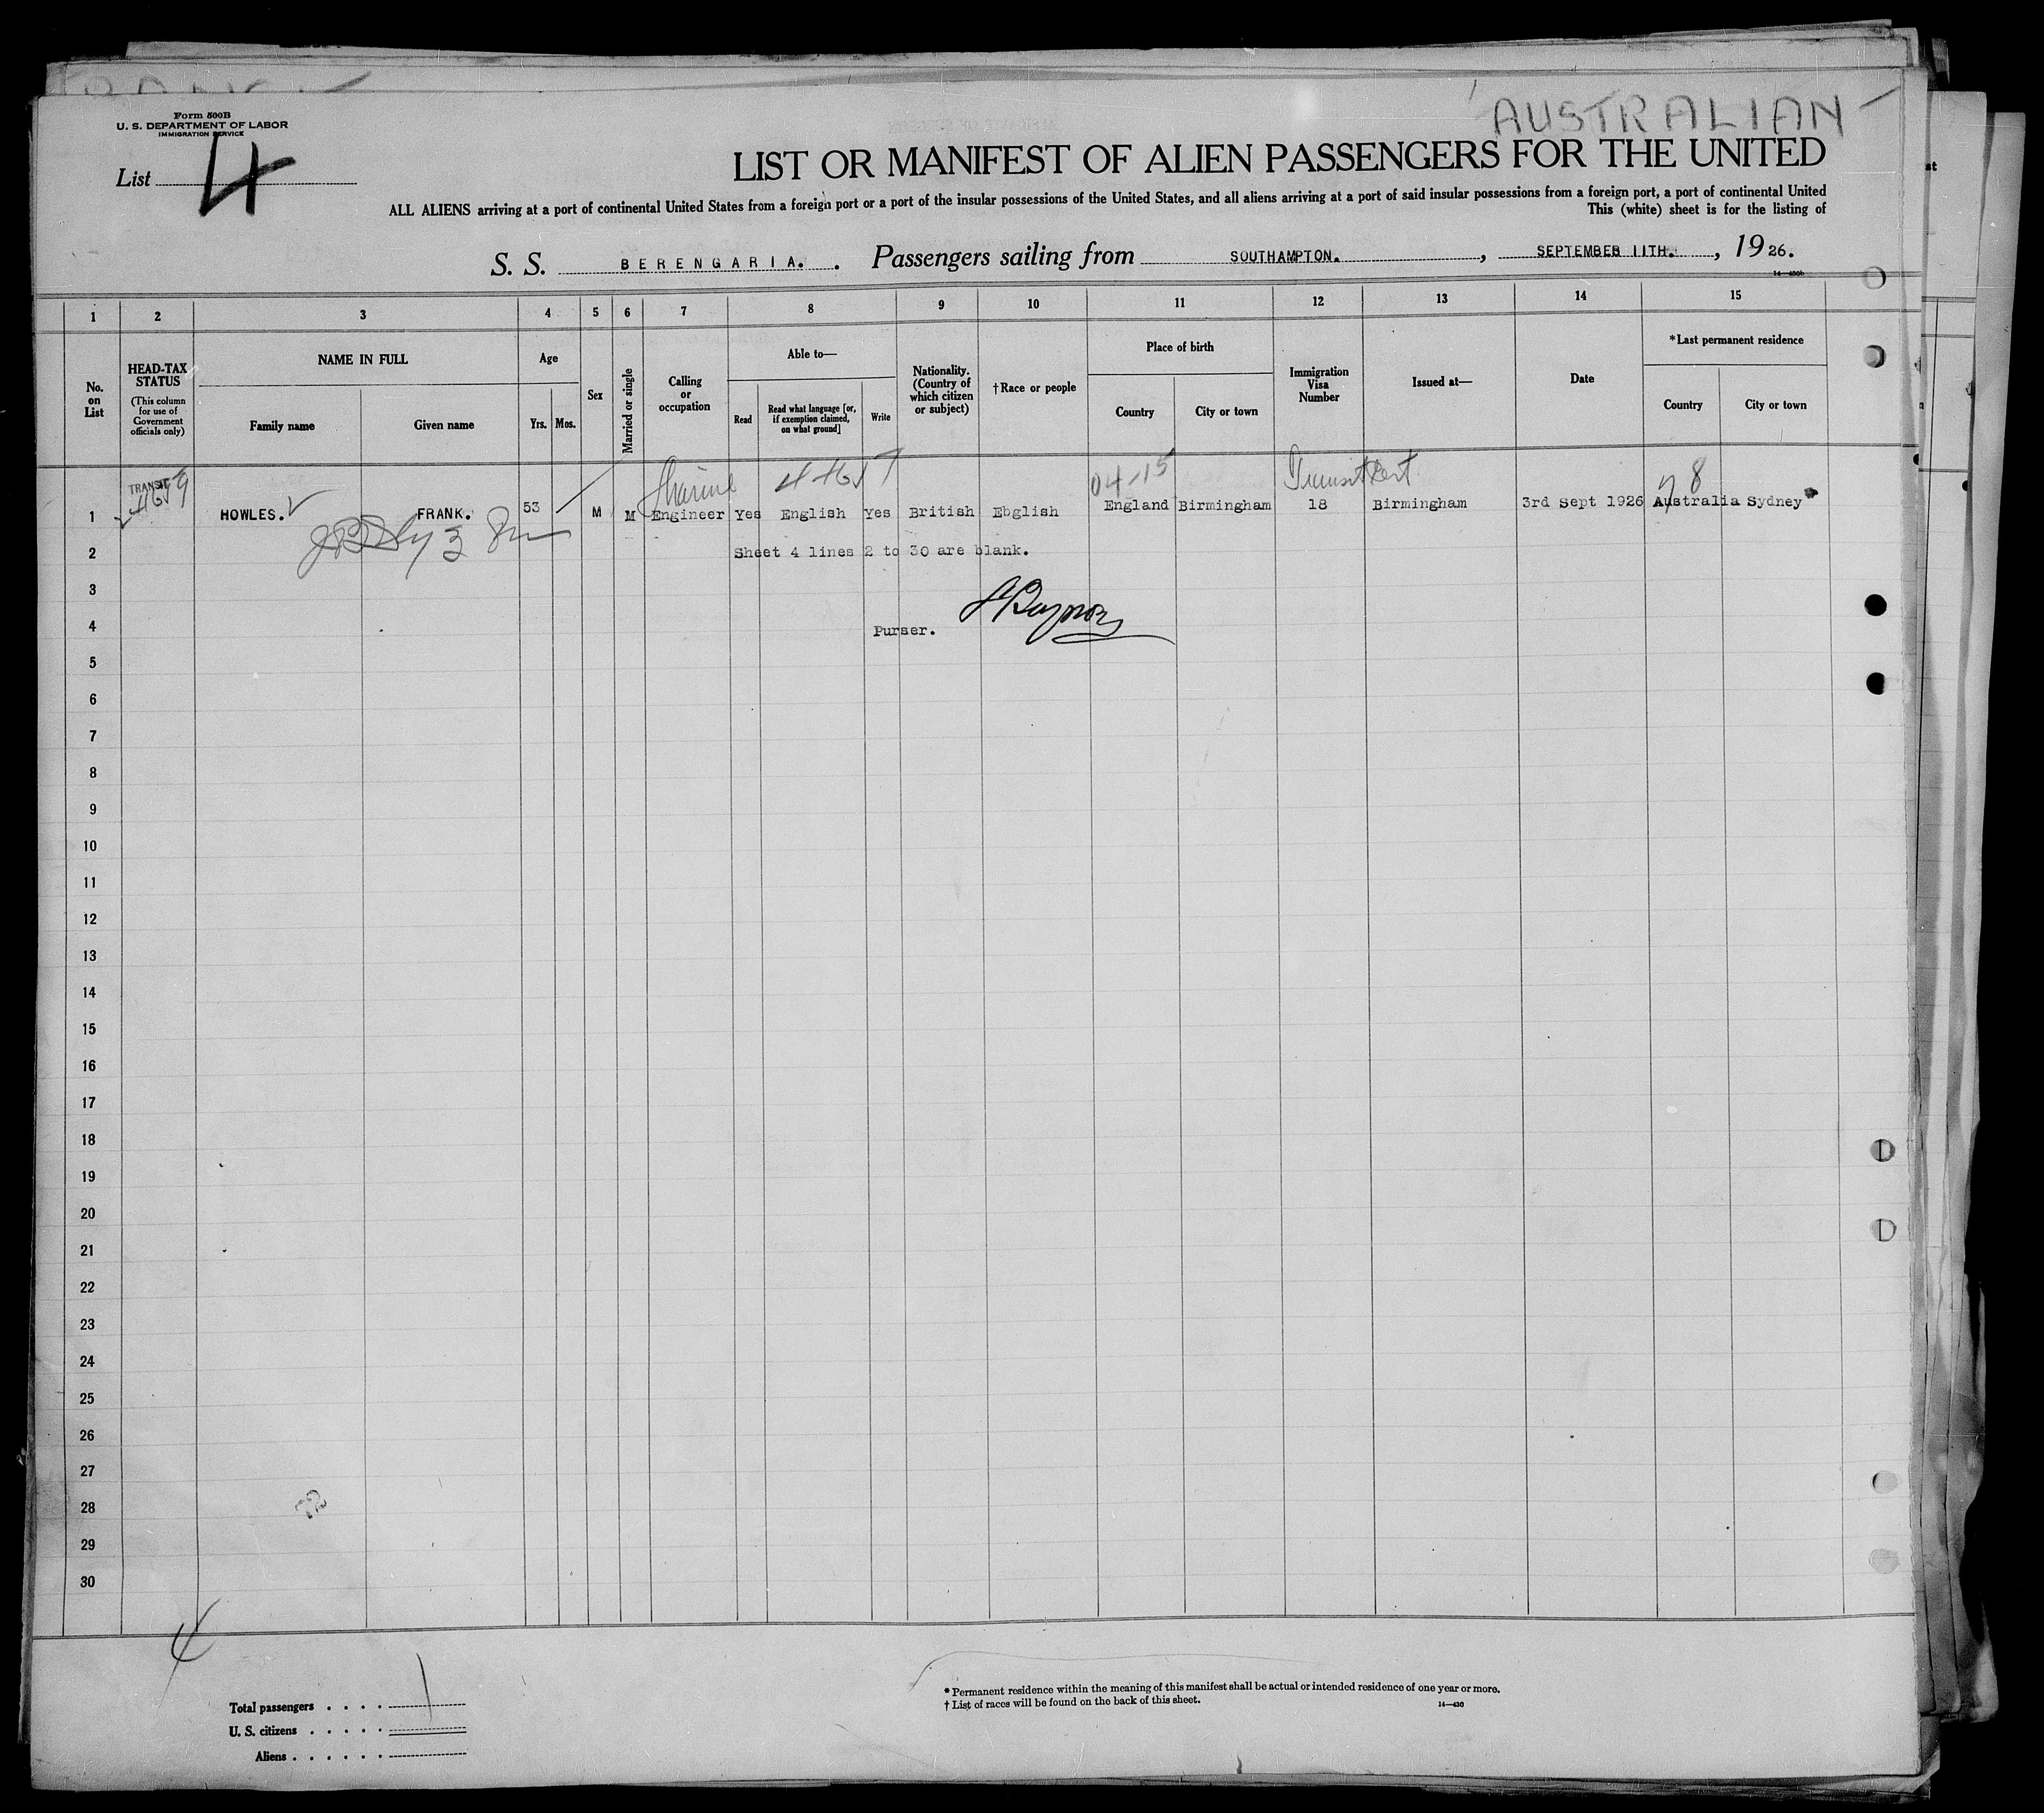 AUSTRALIAN
Form 500B
U. S. DEPARTMENT OF LABOR
IMMIGRATION SERVICE
List 4
LIST OR MANIFEST OF ALIEN PASSENGERS FOR THE UNITED
ALL ALIENS arriving at a port of continental United States from a foreign port or a port of the insular possessions of the United States, and all aliens arriving at a port of said insular possessions from a foreign port, a port of continental United
This (white) sheet is for the listing of
S. S. BERENGARIA. Passengers sailing from SOUTHAMPTON. , SEPTEMBER 11TH. , 1926.
1 2 3 4 5 6 7 8 9 10 11 12 13 14 15
No. on List
HEAD-TAX STATUS
(This column for use of Government officials only)
NAME IN FULL
Family name Given name
Age
Yrs. Mos.
Sex
Married or single
Calling or occupation
Able to—
Read
Read what language [or, if exemption claimed, on what ground]
Write
Nationality. (Country of which citizen or subject)
†Race or people
Place of birth
Country City or town
Immigration Visa Number
Issued at—
Date
*Last permanent residence
Country City or town
TRANSIT 04-15 Transit Cert 78
1 HOWLES. FRANK. 53 M M Engineer Yes English Yes British Ebglish England Birmingham 18 Birmingham 3rd Sept 1926 Australia Sydney
2 Sheet 4 lines 2 to 30 are blank.
3
4 Purser.
5
6
7
8
9
10
11
12
13
14
15
16
17
18
19
20
21
22
23
24
25
26
27
28
29
30
4
Total passengers . . . . 1
U. S. citizens . . . . .
Aliens . . . . . .
* Permanent residence within the meaning of this manifest shall be actual or intended residence of one year or more.
† List of races will be found on the back of this sheet.
14—430